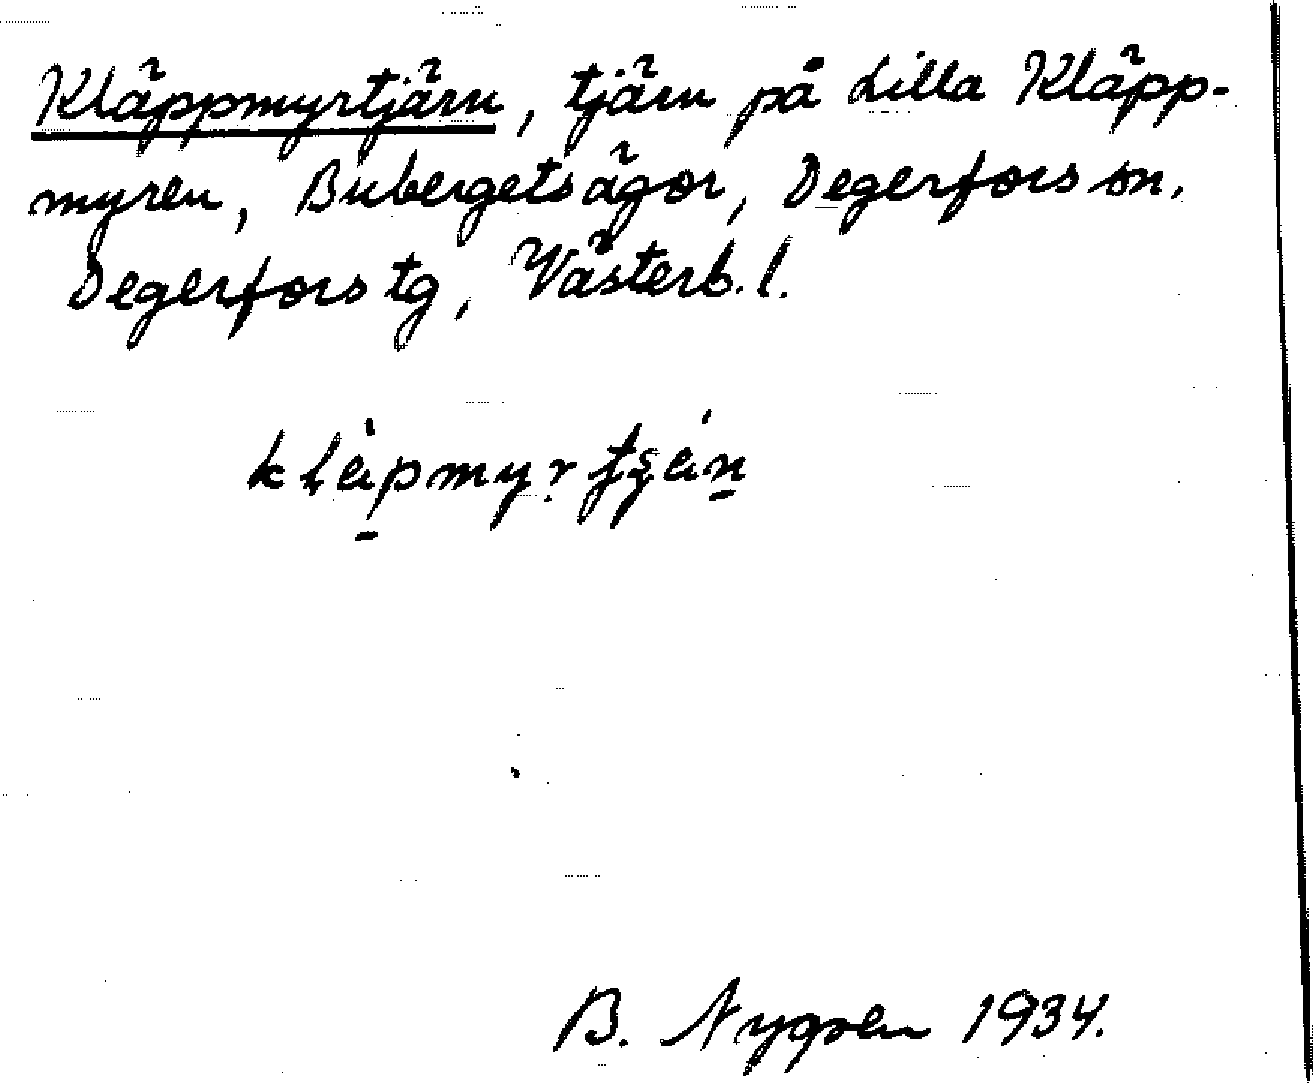 Kläppmyrtjärn, tjärn på Lilla Kläpp-
myren, Bubergets ägor, Degerfors sn,
Degerfors tg, Västerb. l.
B. Nygren 1934.